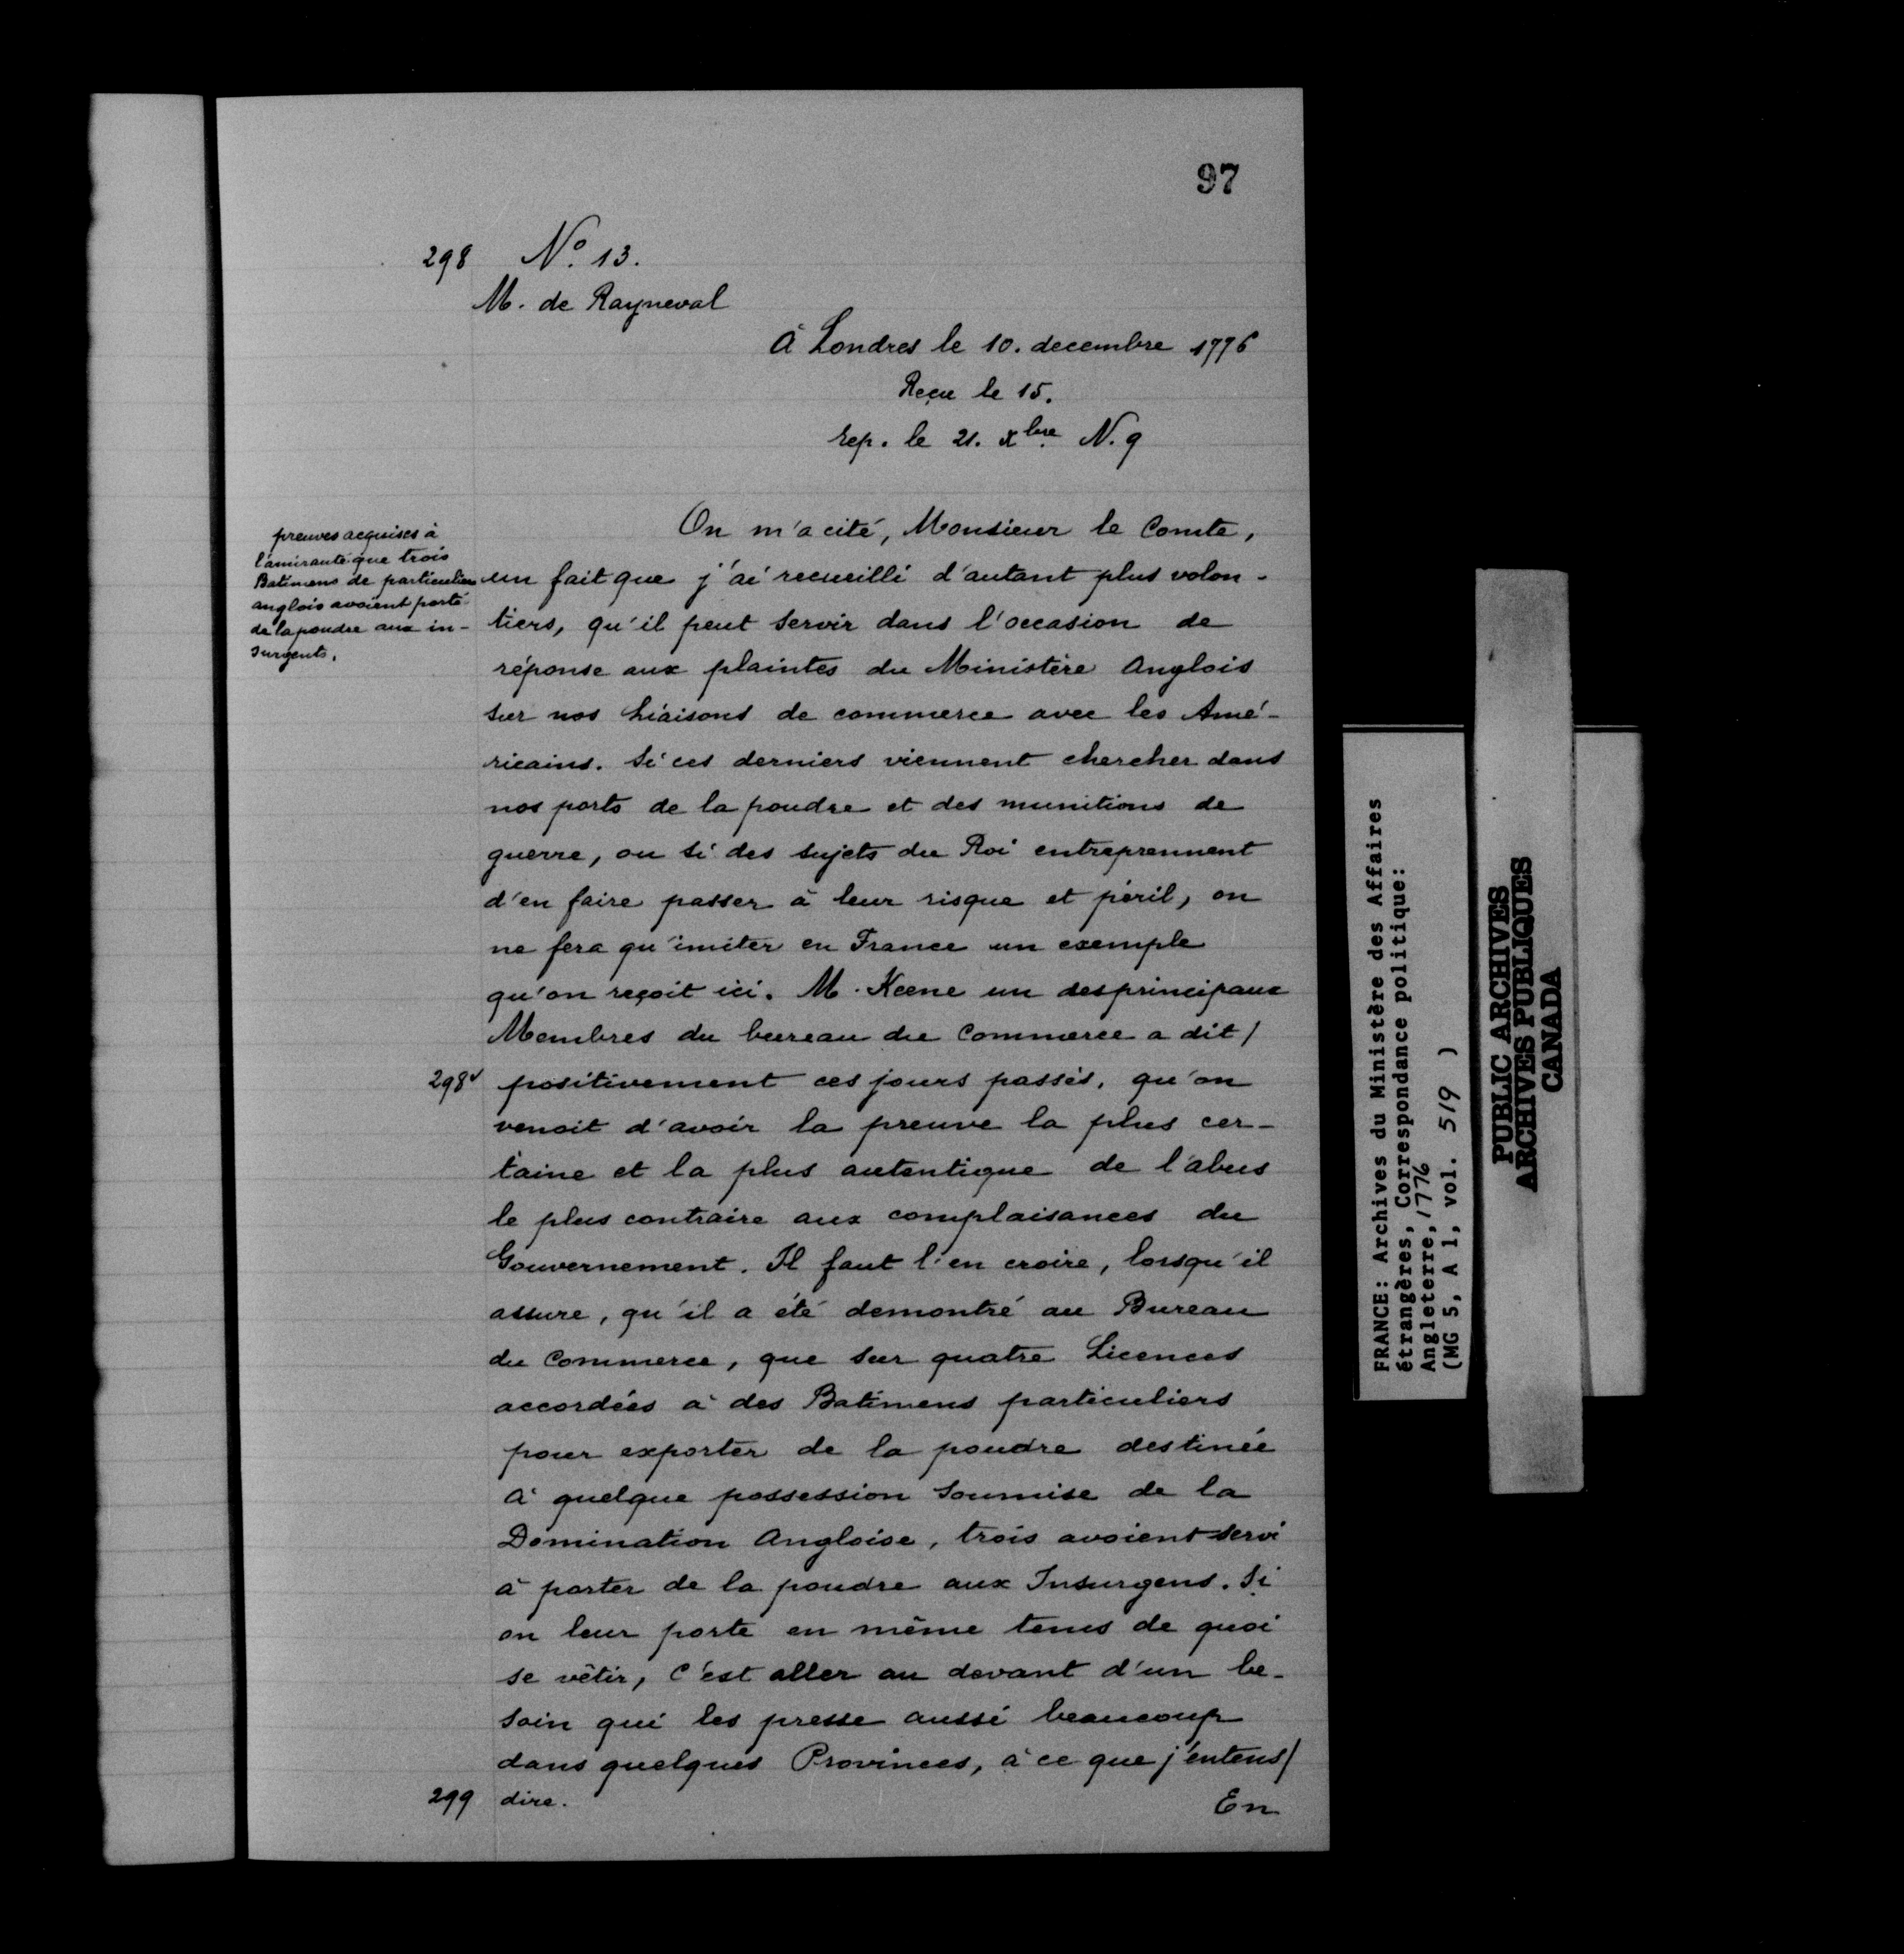 97
298 Nº. 13.
M. de Rayneval
À Londres le 10. decembre 1776
Reçu le 15.
rep. le 21. xbre N. 9
preuves acquises à
l'amirauté que trois
Batimens de particuliers
anglois avoient porté
de la poudre aux in-
surgents.
On m'a cité, Monsieur le Comte,
un fait que j'ai recueilli d'autant plus volon-
tiers, qu'il peut servir dans l'occasion de
réponse aux plaintes du Ministère Anglois
sur nos liaisons de commerce avec les Amé-
ricains. Si ces derniers viennent chercher dans
nos ports de la poudre et des munitions de
guerre, ou si des sujets du Roi entreprennent
d'en faire passer à leur risque et péril, on
ne fera qu'imiter en France un exemple
qu'on reçoit ici. M. Keene un des principaux
Membres du bureau du Commerce a dit/
298v positivement ces jours passés, qu'on
venoit d'avoir la preuve la plus cer-
taine et la plus autentique de l'abus
le plus contraire aux complaisances du
Gouvernement. Il faut l'en croire, lorsqu'il
assure, qu'il a été demontré au Bureau
du Commerce, que sur quatre Licences
accordées à des Batimens particuliers
pour exporter de la poudre destinée
à quelque possession soumise de la
Domination Angloise, trois avoient servi
à porter de la poudre aux Insurgens. Si
on leur porte en même tems de quoi
se vêtir, c'est aller au devant d'un be-
soin qui les presse aussi beaucoup
dans quelques Provinces, à ce que j'entens/
299 dire.
En
FRANCE: Archives du Ministère des Affaires
étrangères, Correspondance politique:
Angleterre, 1776
(MG 5, A 1, vol. 519 )
PUBLIC ARCHIVES
ARCHIVES PUBLIQUES
CANADA